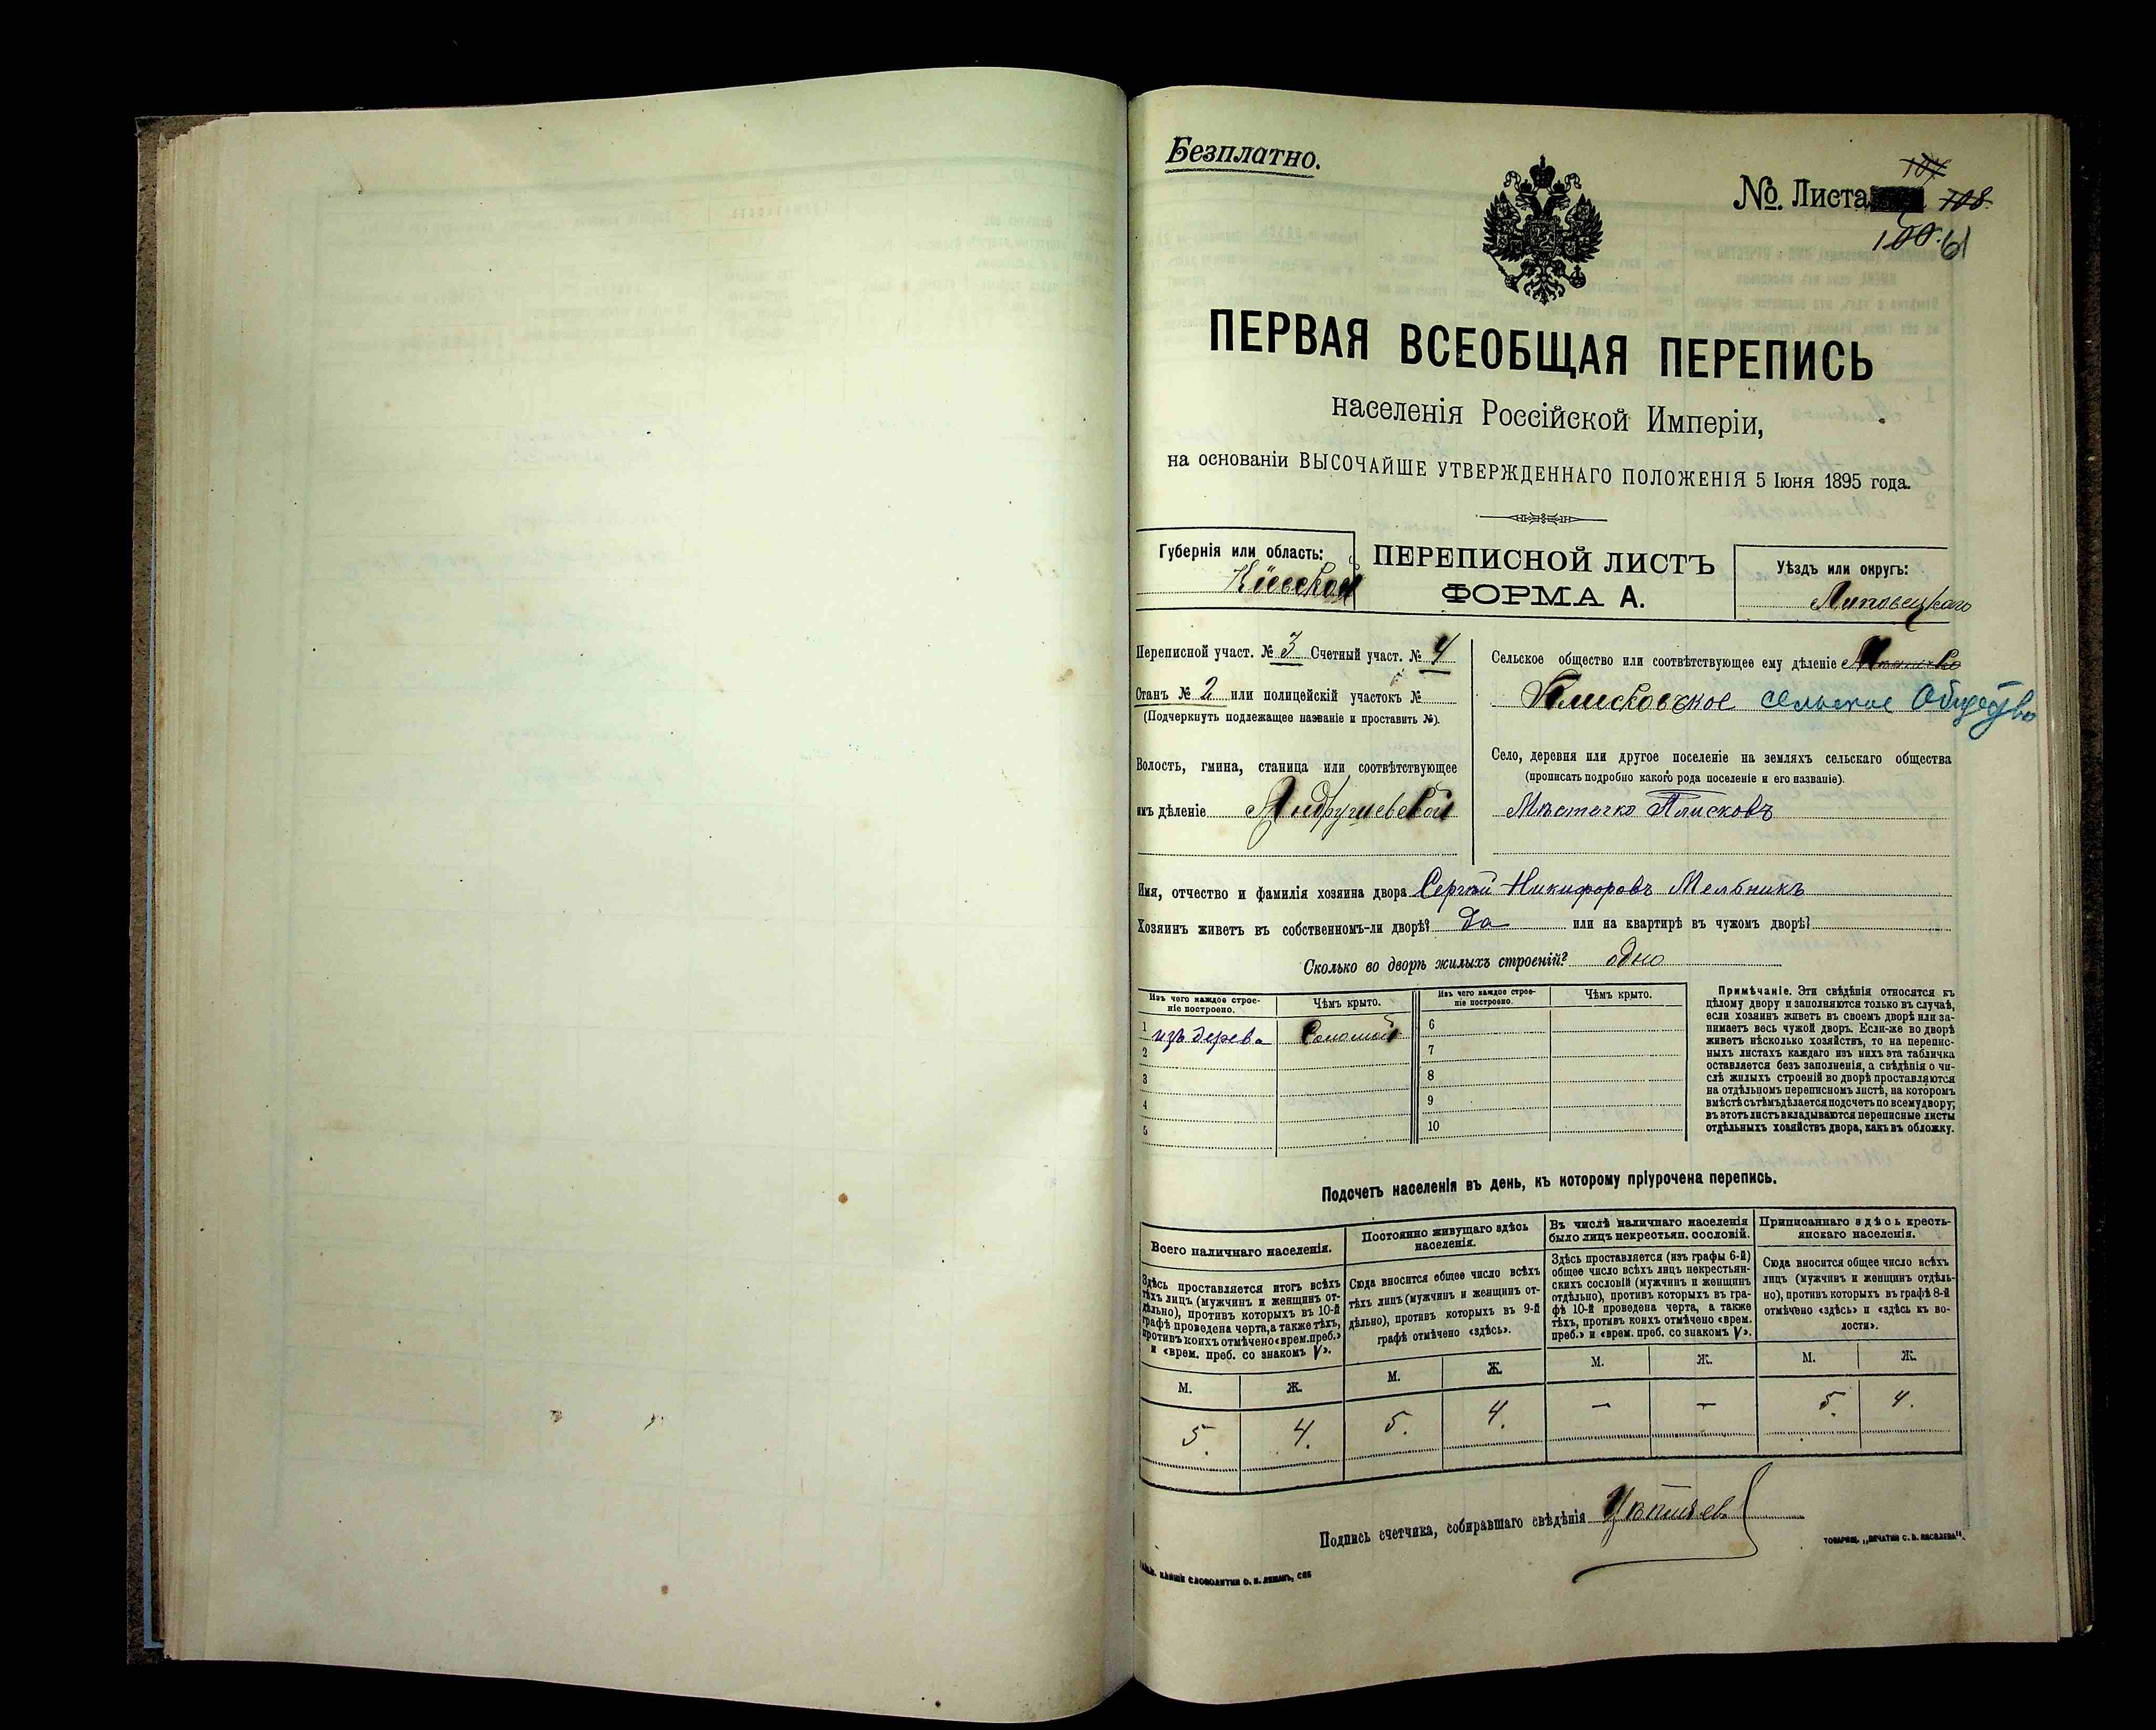 Безплатно.
107
№. Листа 108
100. 61
ПЕРВАЯ ВСЕОБЩАЯ ПЕРЕПИСЬ
населенія Россійской Имперіи,
на основаніи ВЫСОЧАЙШЕ УТВЕРЖДЕННАГО ПОЛОЖЕНІЯ 5 Іюня 1895 года.
Губернія или область:
Кіевской
ПЕРЕПИСНОЙ ЛИСТЪ
ФОРМА А.
Уѣздъ или округъ:
Липовецкаго
Переписной участ. № 3 Счетный участ. № 4
Станъ № 2 или полицейскій участокъ №
(Подчеркнуть подлежащее названіе и проставить №).
Волость, гмина, станица или соотвѣтствующее
имъ дѣленіе Андрушевской
Сельское общество или соотвѣтствующее ему дѣленіе
Плисковское сельское Общество
Село, деревня или другое поселеніе на земляхъ сельскаго общества
(прописать подробно какого рода поселеніе и его названіе).
Мѣстечко Плисковъ
Имя, отчество и фамилія хозяина двора Сергѣй Никифоровъ Мельникъ
Хозяинъ живетъ въ собственномъ-ли дворѣ? Да или на квартирѣ въ чужомъ дворѣ?
Сколько во дворѣ жилыхъ строеній? одно
Изъ чего каждое строе-
ніе построено.
Чѣмъ крыто.
Изъ чего каждое строе-
ніе построено.
Чѣмъ крыто.
1 изъ дерева Соломой 6
2 7
3 8
4 9
5 10
Примѣчаніе. Эти свѣдѣнія относятся къ
цѣлому двору и заполняются только въ случаѣ,
если хозяинъ живетъ въ своемъ дворѣ или за-
нимаетъ весь чужой дворъ. Если-же во дворѣ
живетъ нѣсколько хозяйствъ, то на перепис-
ныхъ листахъ каждаго изъ нихъ эта табличка
оставляется безъ заполненія, а свѣдѣнія о чи-
слѣ жилыхъ строеній во дворѣ проставляются
на отдѣльномъ переписномъ листѣ, на которомъ
вмѣстѣ съ тѣмъ дѣлается подсчетъ по всему двору;
въ этотъ листъ вкладываются переписные листы
отдѣльныхъ хозяйствъ двора, какъ въ обложку.
Подсчетъ населенія въ день, къ которому пріурочена перепись.
Всего наличнаго населенія.
Здѣсь проставляется итогъ всѣхъ
тѣхъ лицъ (мужчинъ и женщинъ от-
дѣльно), противъ которыхъ въ 10-й
графѣ проведена черта, а также тѣхъ,
противъ коихъ отмѣчено «врем. преб.»
и «врем. преб. со знакомъ V».
Постоянно живущаго здѣсь
населенія.
Сюда вносится общее число всѣхъ
тѣхъ лицъ (мужчинъ и женщинъ от-
дѣльно), противъ которыхъ въ 9-й
графѣ отмѣчено «здѣсь».
Въ числѣ наличнаго населенія
было лицъ некрестьян. сословій.
Здѣсь проставляется (изъ графы 6-й)
общее число всѣхъ лицъ некрестьян-
скихъ сословій (мужчинъ и женщинъ
отдѣльно), противъ которыхъ въ гра-
фѣ 10-й проведена черта, а также
тѣхъ, противъ коихъ отмѣчено «врем.
преб.» и «врем. преб. со знакомъ V».
Приписаннаго здѣсь кресть-
янскаго населенія.
Сюда вносится общее число всѣхъ
лицъ (мужчинъ и женщинъ отдѣль-
но), противъ которыхъ въ графѣ 8-й
отмѣчено «здѣсь» и «здѣсь къ во-
лости».
М. Ж. М. Ж. М. Ж. М. Ж.
5. 4. 5. 4. — — 5. 4.
Подпись счетчика, собиравшаго свѣдѣнія
ТОВАРИЩ. „ПЕЧАТНИ С. П. ЯКОВЛЕВА".
СЛОВОЛИТНИ О. И. ЛЕМАНЪ, СПБ